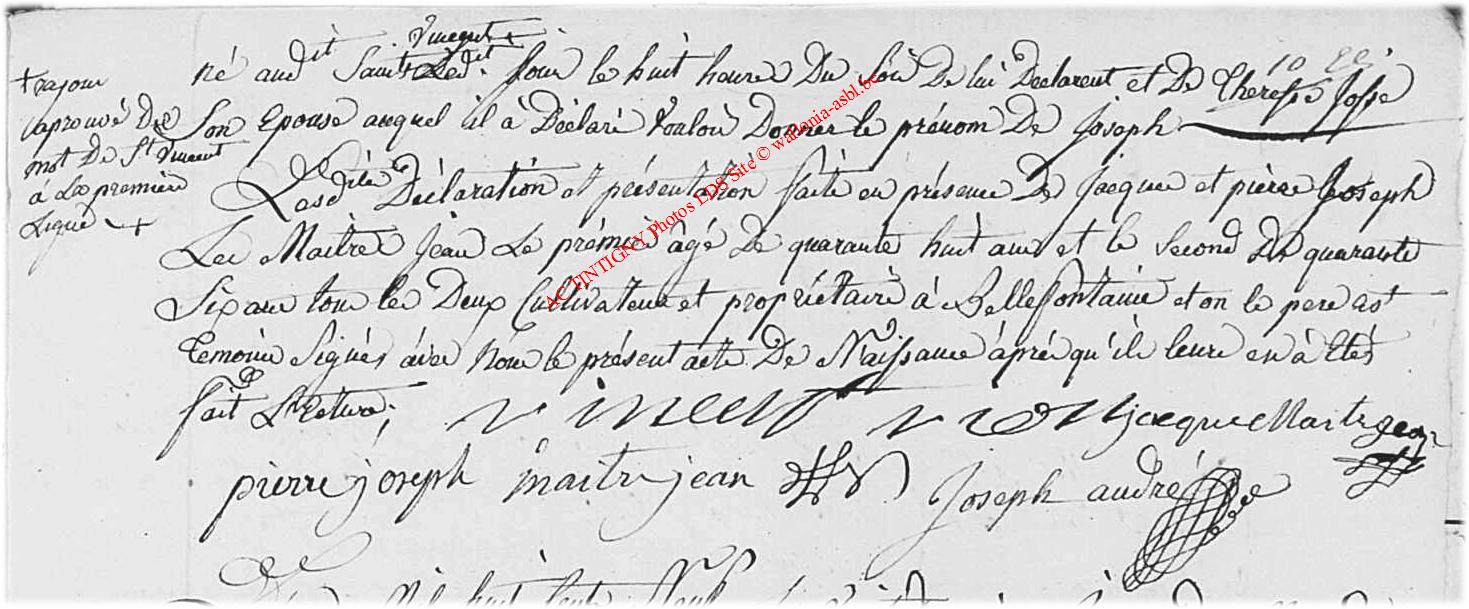 Vincent +
né audit Saint Ledit jour le huit heures Du Soir De lui Declarent et De Therese Josse
Son Epouse auquel il à Déclaré Vouloir Donner le prénom De Joseph
Lesdite Déclaration et présentation faite en présence De Jacque et pierre Joseph
Les Maitres Jean Le prémier âgé De quarante huit ans et le Second De quarante
Six ans tous les Deux Cultivateurs et propriétaire à Bellefontaine et on le pere et
Temoins Signés avec Nous le présent acte De Naissance áprés qu'ils leure en à Etés
fait Lecture;
vincent jacque Maitrejean
pierre joseph maitrejean Joseph andré
+ rajour
aprouvé De
mot De St Vincent
á La premiére
Ligne +
ACTINTIGNY Photos EDS Site © wallonia-asbl.be